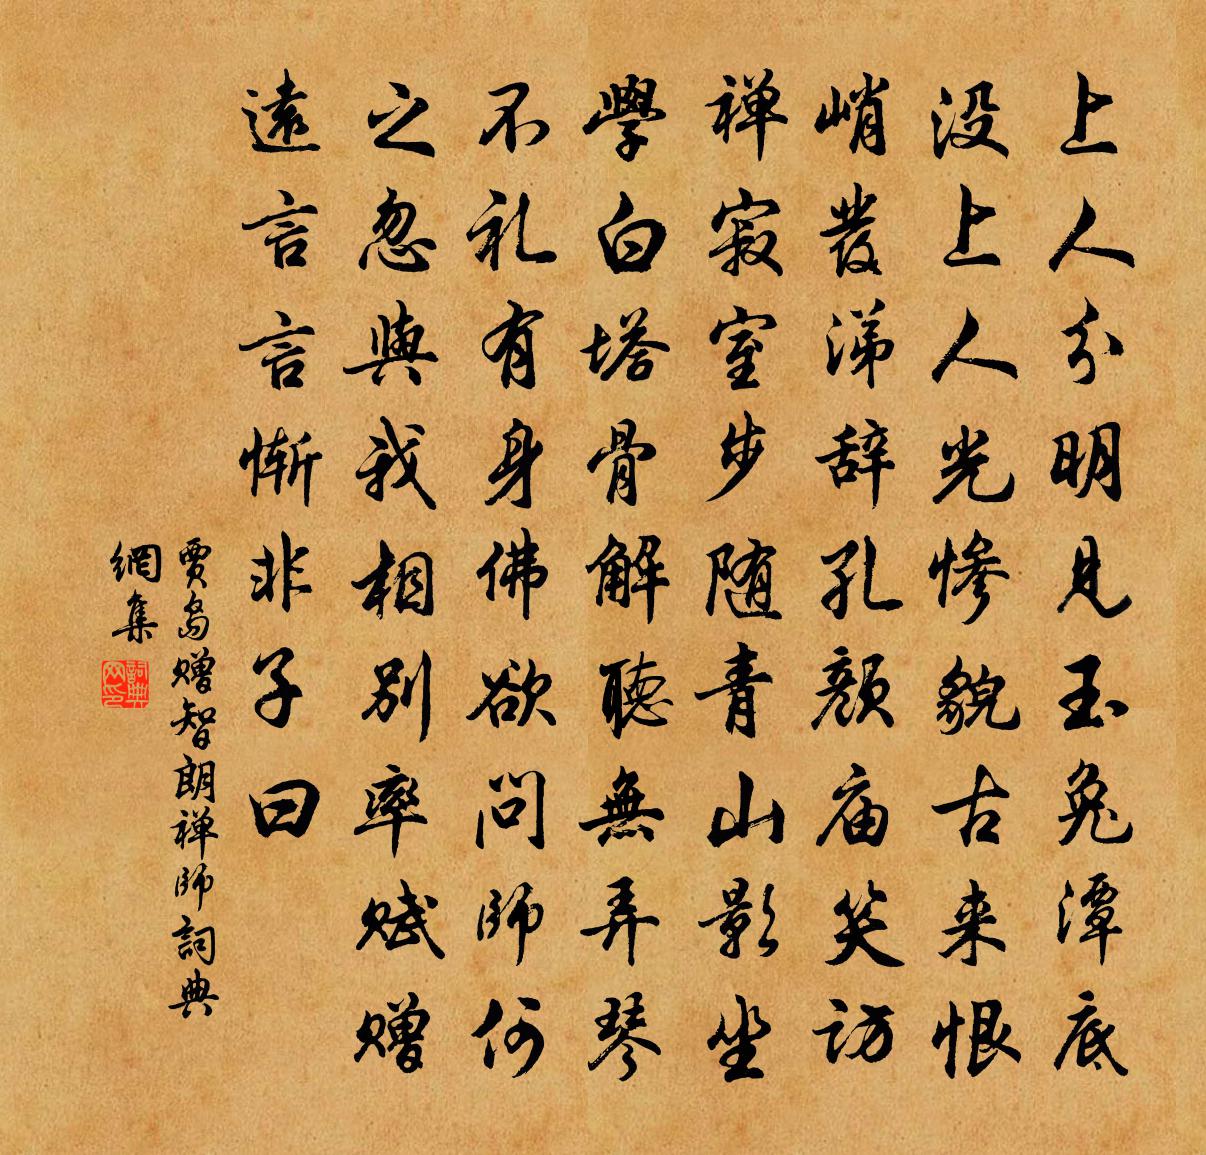 上人分明見玉兔潭底
没上人光慘貌古来恨
峭發涕辞孔顔庙笑訪
禅寂室步随青山影坐
學白塔骨解聽無弄琴
不礼有身佛欲問師何
之忽與我相别率赋赠
遠言言慚非子曰
賈岛赠智朗禅師詞典
網集
詞典